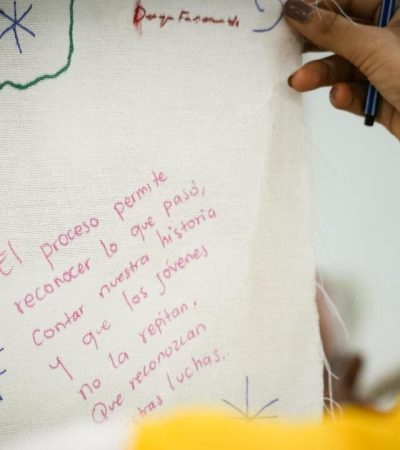 El proceso permite
reconocer lo que pasó,
contar nuestra historia
y que los jóvenes
no la repitan.
Que reconozcan
luchas.